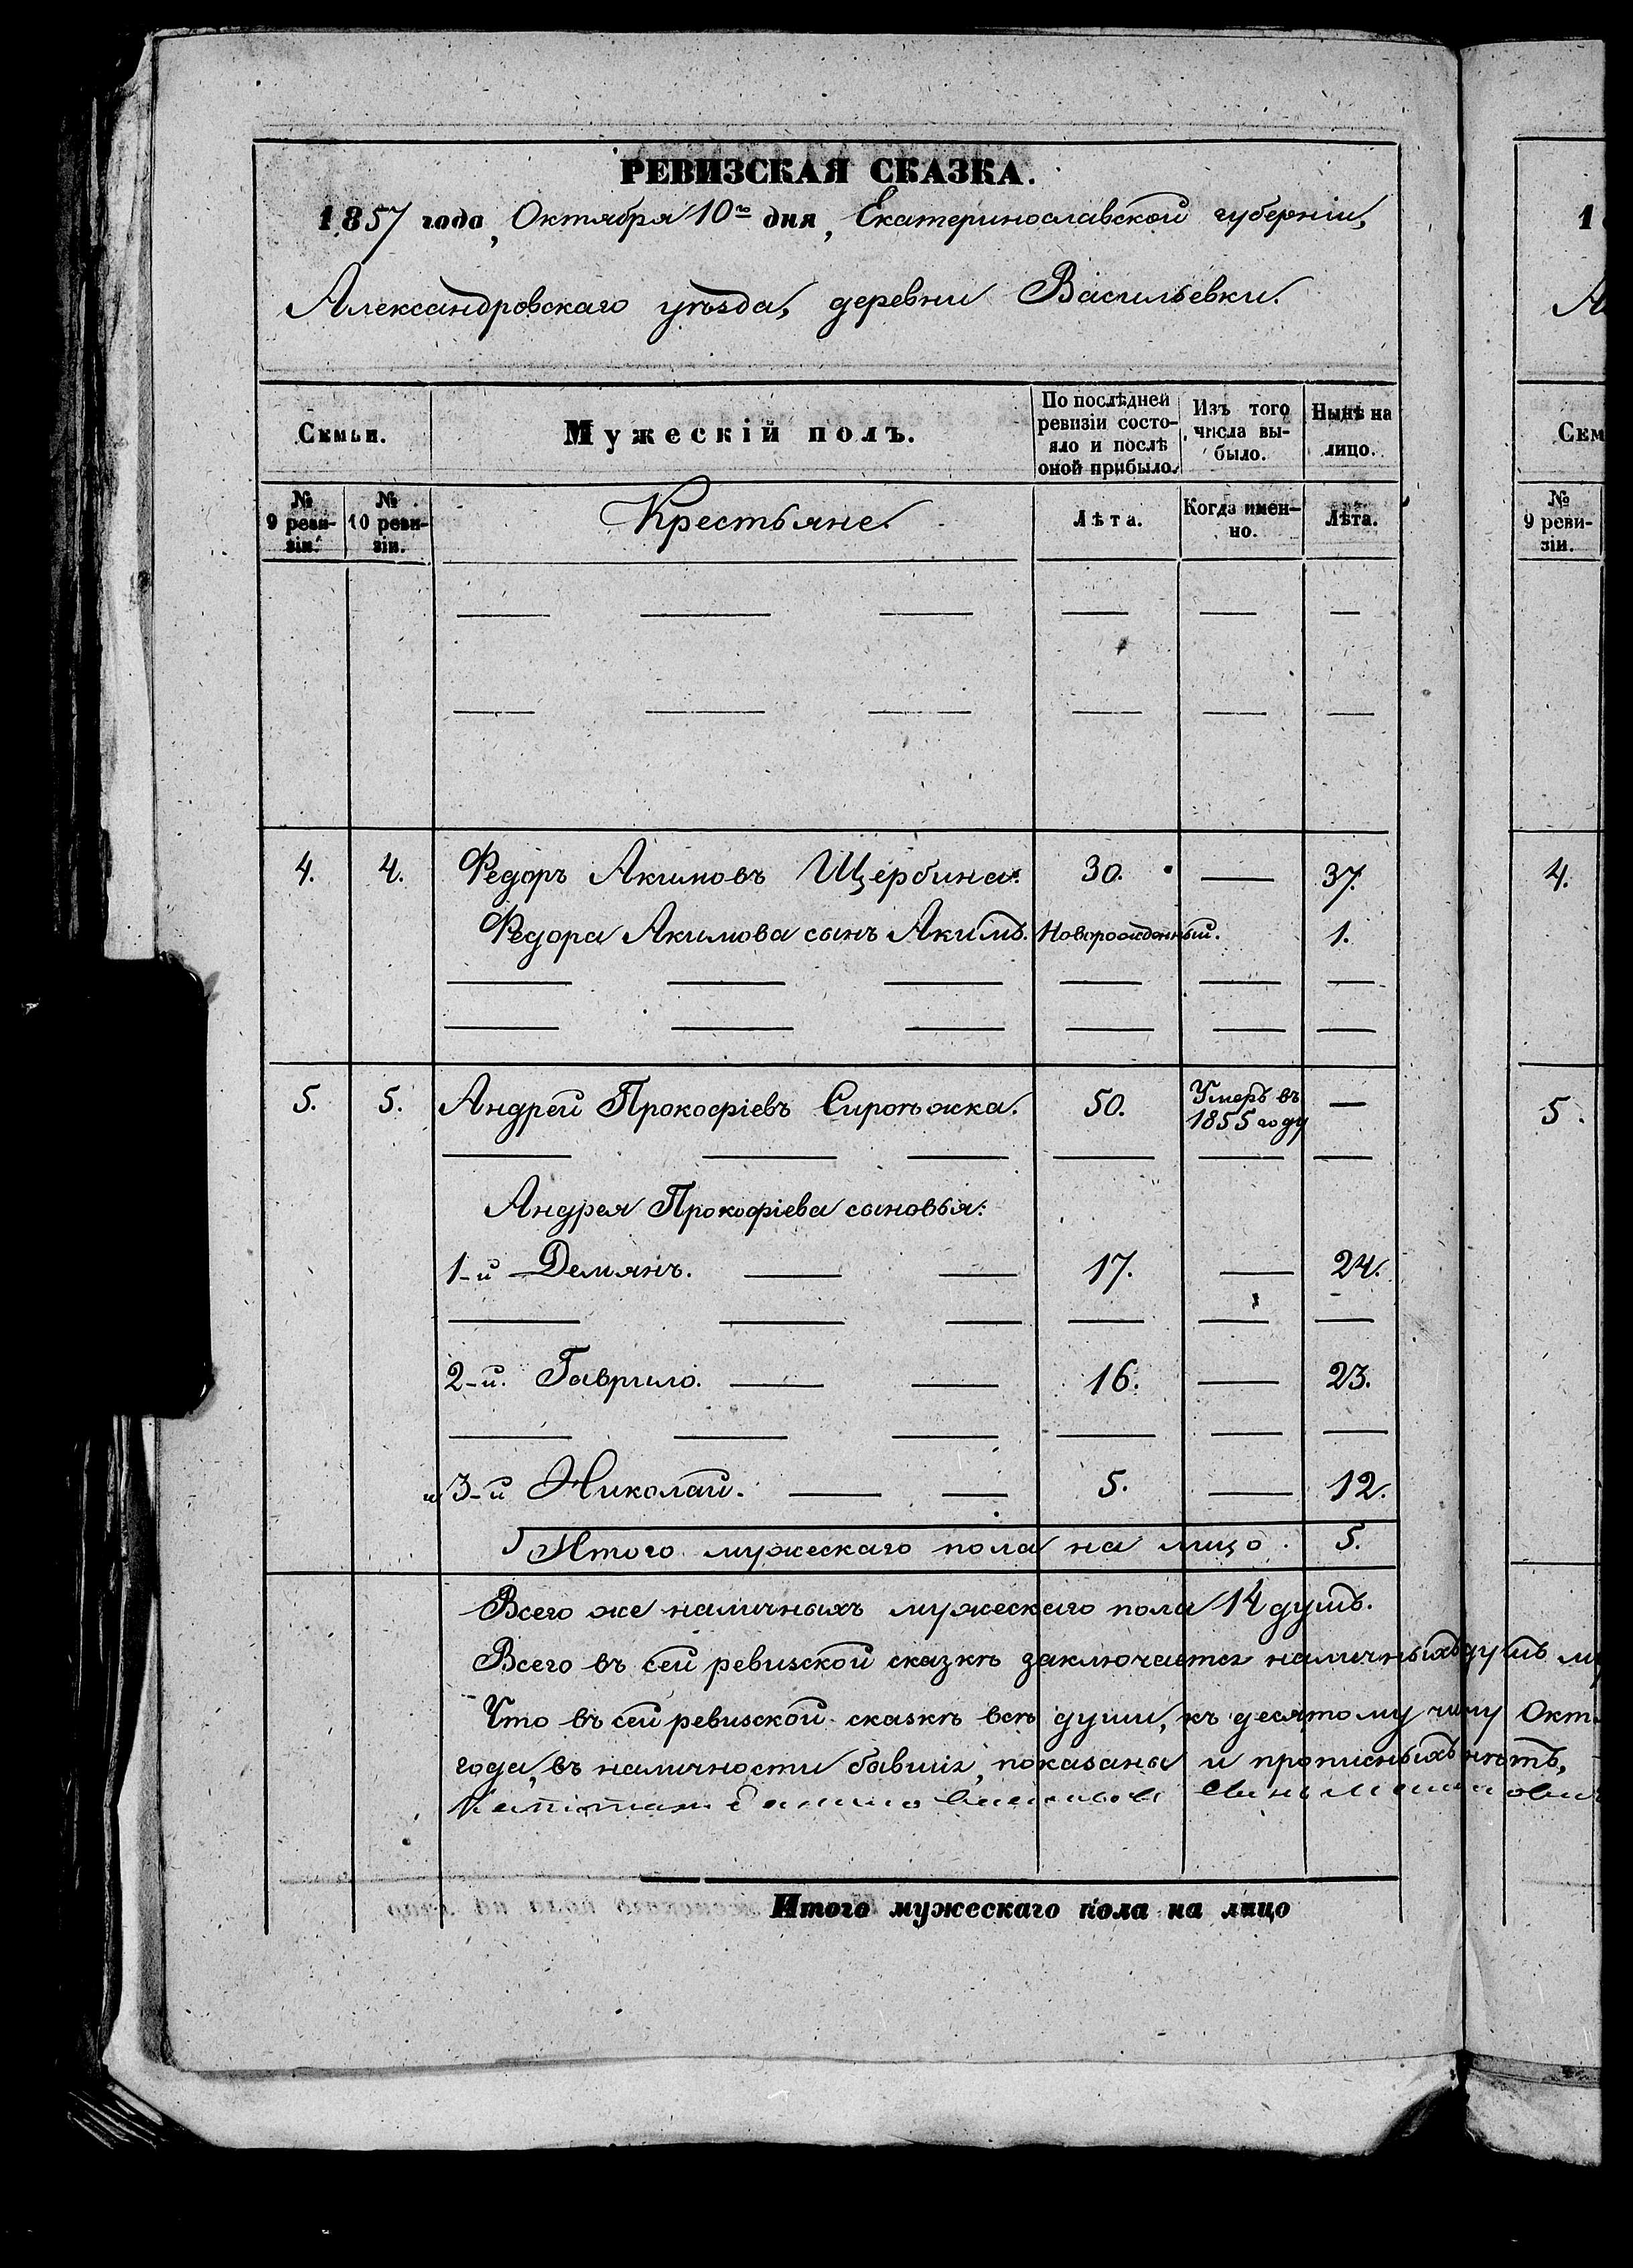 РЕВИЗСКАЯ СКАЗКА.
1857 года, Октября 10го дня, Екатеринославской губерніи,
Александровскаго уѣзда, деревни Васильевки.
Семьи.
Мужескій полъ.
По послѣдней ревизіи состояло и послѣ оной прибыло.
Изъ того числа выбыло.
Нынѣ на лицо.
№ 9 ревизіи.
№ 10 ревизіи.
Крестьяне.
Лѣта.
Когда именно.
Лѣта.
4. 4. Федоръ Акимовъ Щербина. 30. — 37.
Федора Акимова сынъ Акимъ. Новорожденный. 1.
5. 5. Андрей Прокофіевъ Сыроѣжка. 50. Умеръ въ 1855 году —
Андрея Прокофіева сыновья:
1-й Демянъ. — — 17. — 24.
2-й. Гаврило. — — 16. — 23.
и 3-й Николай. — — 5. — 12.
Итого мужескаго пола на лицо. 5.
Всего же наличныхъ мужескаго пола 14 душъ.
Всего въ сей ревизской сказкѣ заключается наличныхъ душъ
Что въ сей ревизской сказкѣ всѣ души, къ десятому числу Окт
года, въ наличности бывшія, показаны и прописныхъ нѣтъ,
Итого мужескаго пола на лицо
1
А
Сем
№
9 реви-
зіи.
4.
5.